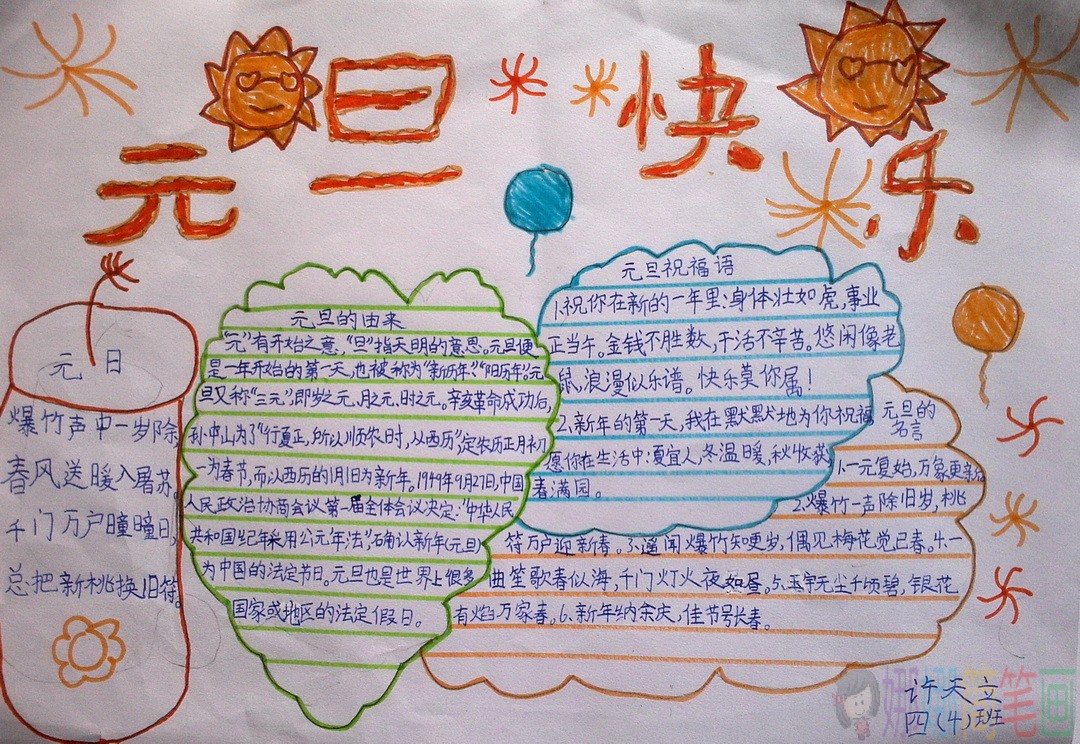 元旦快乐
元旦
爆竹声中一岁除
春风送暖入屠苏。
千门万户曈曈日,
总把新桃换旧符。
元旦的由来
“元”有开始之意,“旦”指天明的意思。元旦便
是一年开始的第一天,也被称为“新历年”“阳历年”。元
旦又称“三元”即岁之元、月之元、时之元。辛亥革命成功后,
孙中山为了“行夏正,所以顺农时,从西历”定农历正月初
一为春节,而以西历的1月1日为新年。1949年9月27日,中国
人民政治协商会议第一届全体会议决定:“中华人民
共和国纪年采用公元年法”,确认新年(元旦)
为中国的法定节日。元旦也是世界上很多
国家或地区的法定假日。
元旦祝福语
1.祝你在新的一年里:身体壮如虎,事业
正当午。金钱不胜数,干活不辛苦。悠闲像老
鼠,浪漫似乐谱。快乐莫你属!
2、新年的第一天,我在默默地为你祝福
愿你在生活中:夏宜人,冬温暖,秋收获
春满园。
元旦的
名言
1.一元复始,万象更新。
2.爆竹一声除旧岁,桃
符万户迎新春。3.遥闻爆竹知更岁,偶见梅花觉已春。4.一
曲笙歌春似海,千门灯火夜如昼。5.玉宇无尘千顷碧,银花
有焰万家春。6、新年纳余庆,佳节号长春。
许天立
四(4)班
娜娜简笔画